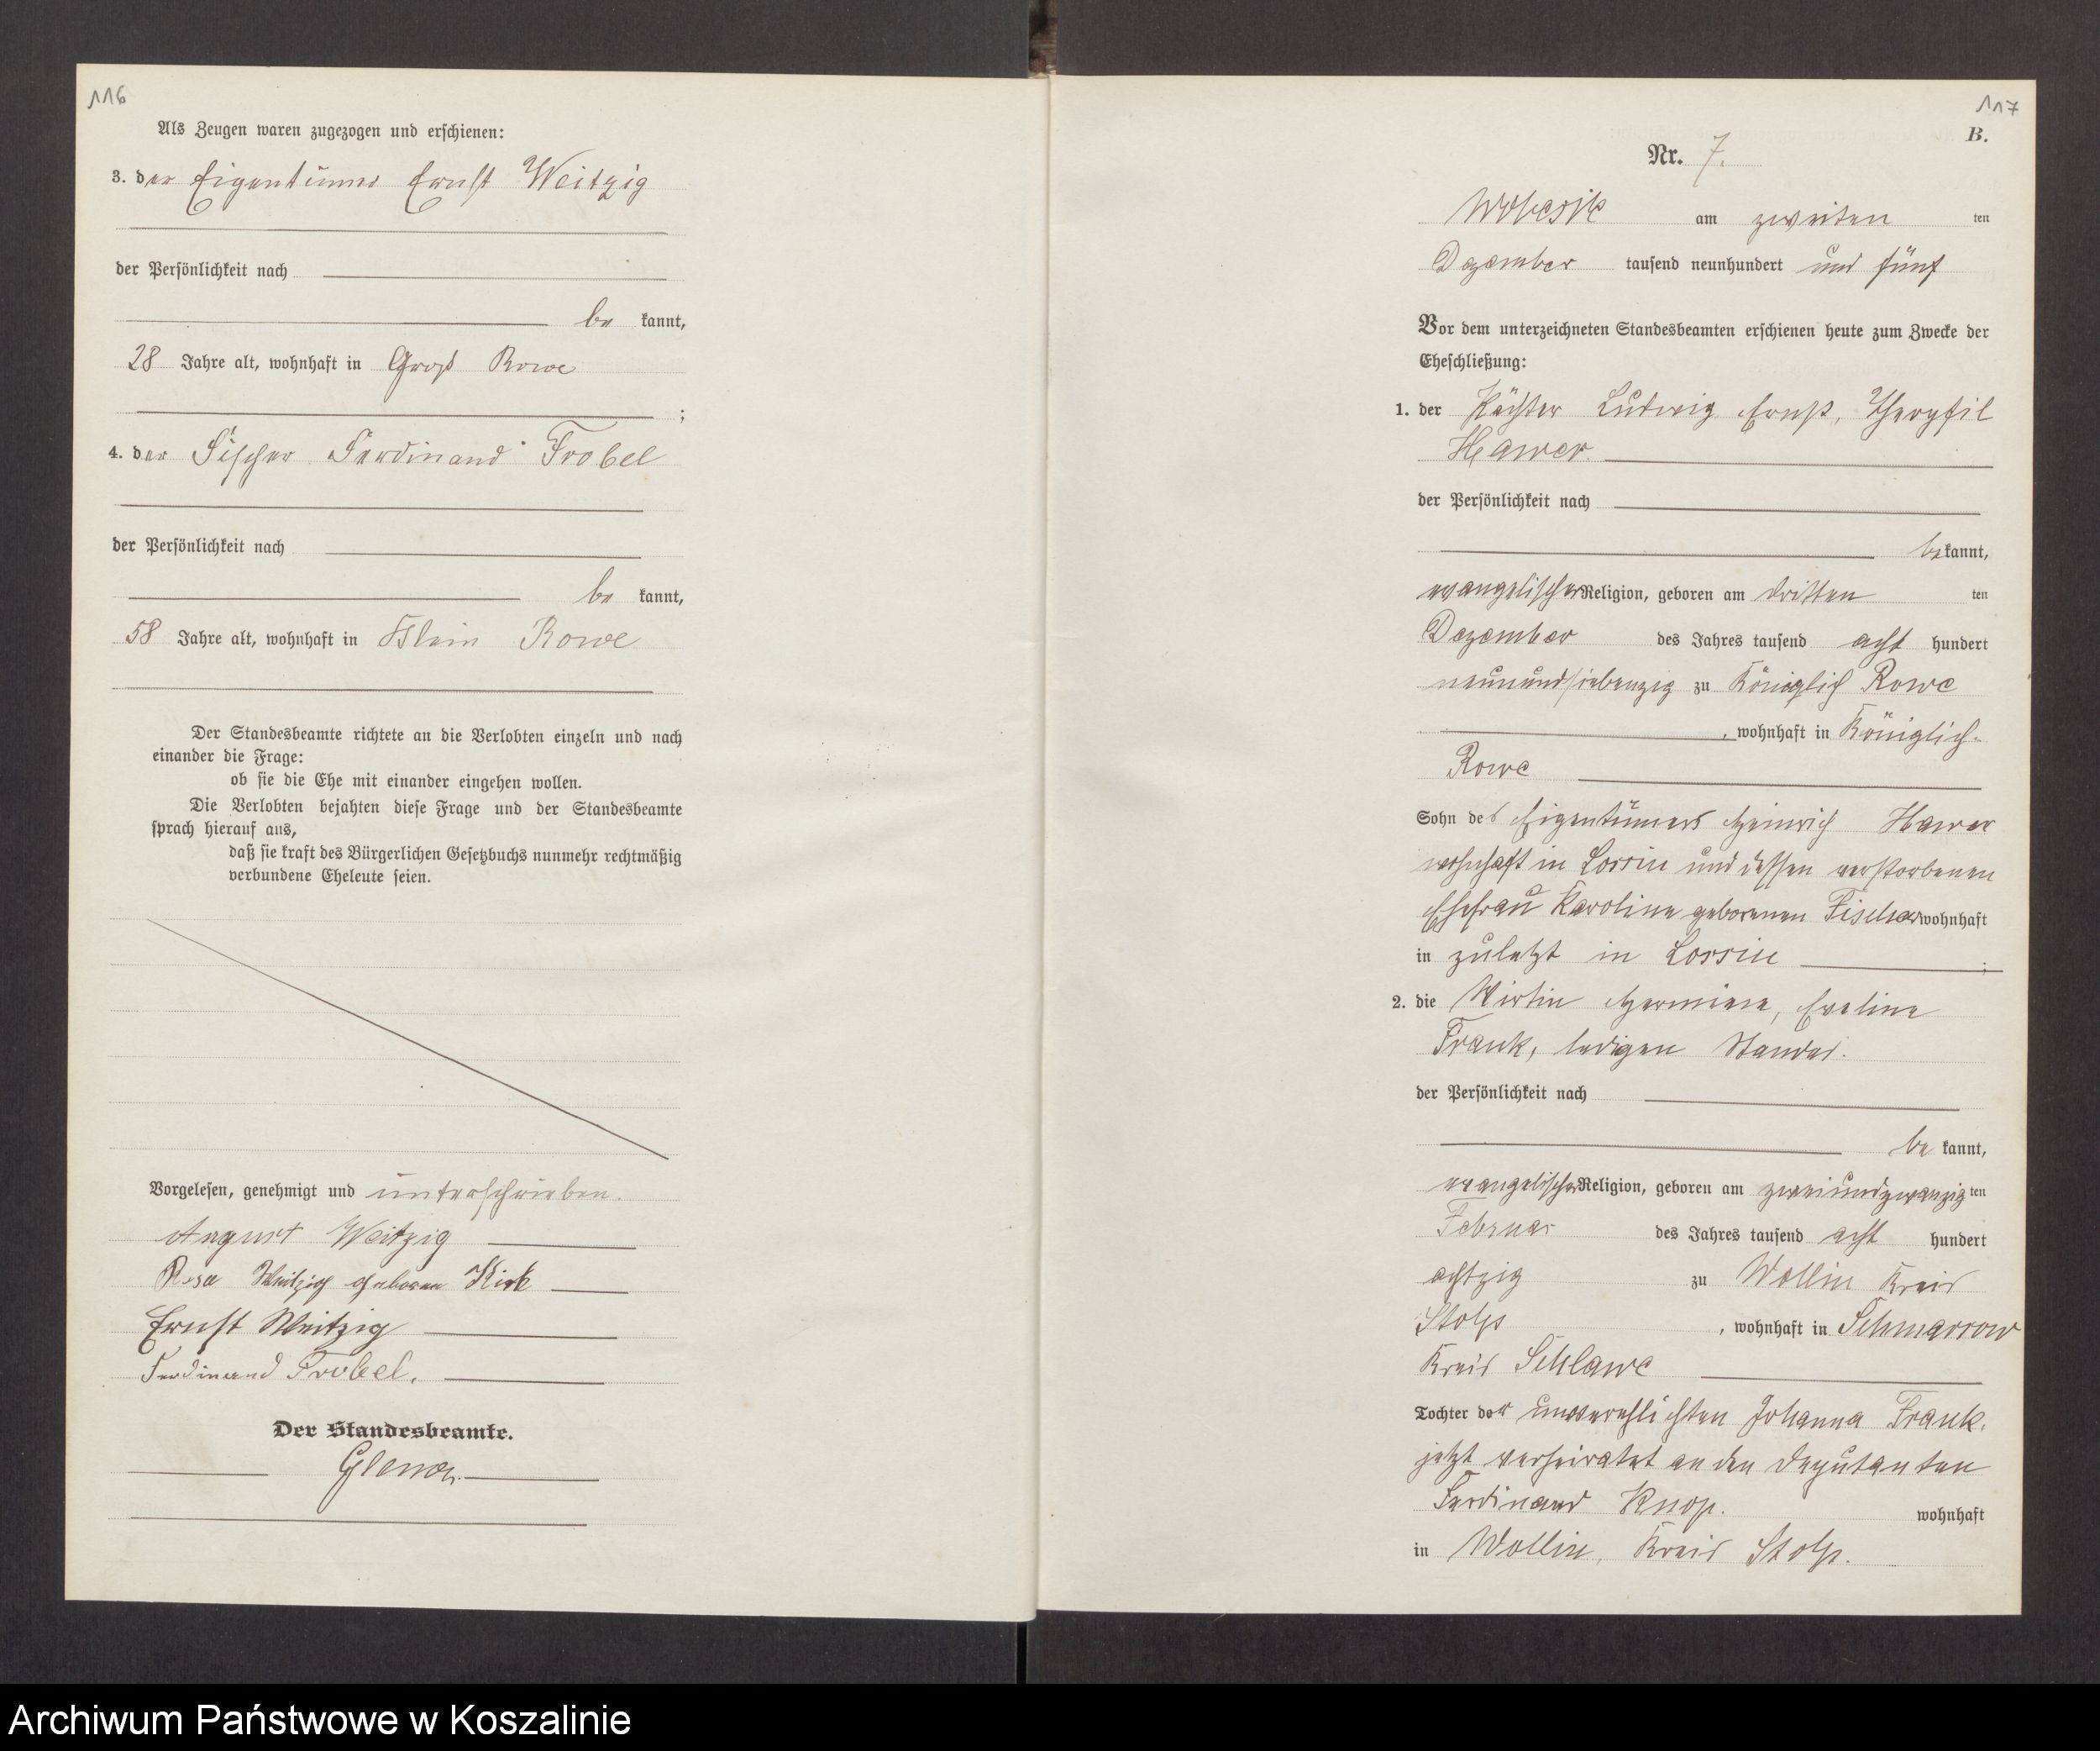 116
Als Zeugen waren zugezogen und erschienen:
3. der Eigentümer Ernst Weitzig
der Persönlichkeit nach
be kannt,
28 Jahre alt, wohnhaft in Groß Rowe
;
4. der Fischer Ferdinand Frobel
der Persönlichkeit nach
be kannt,
58 Jahre alt, wohnhaft in Klein Rowe
Der Standesbeamte richtete an die Verlobten einzeln und nach
einander die Frage:
ob sie die Ehe mit einander eingehen wollen.
Die Verlobten bejahten diese Frage und der Standesbeamte
sprach hierauf aus,
daß sie kraft des Bürgerlichen Gesetzbuchs nunmehr rechtmäßig
verbundene Eheleute seien.
Vorgelesen, genehmigt und unterschrieben.
August Weitzig
Rosa Weitzig geboren Kirk
Ernst Weitzig
Ferdinand Frobel.
Der Standesbeamte.
117
B.
Nr. 7.
am zweiten ten
Dezember tausend neunhundert und fünf
Vor dem unterzeichneten Standesbeamten erschienen heute zum Zwecke der
Eheschließung:
1. der Pächter Ludwig Ernst,
Hawer
der Persönlichkeit nach
be kannt,
evangelischer Religion, geboren am dritten ten
Dezember des Jahres tausend acht hundert
neunundsiebenzig zu Königlich Rowe
, wohnhaft in Königlich-
Rowe
Sohn des Eigentümers Heinrich Hawer
wohnhaft in Lossin und dessen verstorbenen
Ehefrau Karoline geborenen Fischer wohnhaft
in zuletzt in Lossin ;
2. die Wirtin Hermine, Eveline
Frank, ledigen Standes.
der Persönlichkeit nach
be kannt,
evangelischer Religion, geboren am zweiundzwanzig ten
Februar des Jahres tausend acht hundert
achtzig zu Wollin Kreis
Stolp , wohnhaft in Schmarrow
Kreis Schlawe
Tochter der unverehlichten Johanna Frank,
jetzt verheiratet an den Deputanten
Ferdinand Knop. wohnhaft
in Wollin, Kreis Stolp.
Archiwum Państwowe w Koszalinie